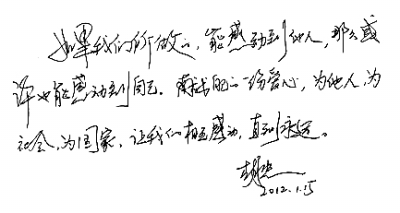 如果我们所做的，能感动到他人，那么或
许也能感动到自己。献我的一份爱心，为他人，为
社会，为国家，让我们相互感动，直到永远。
2012.1.15